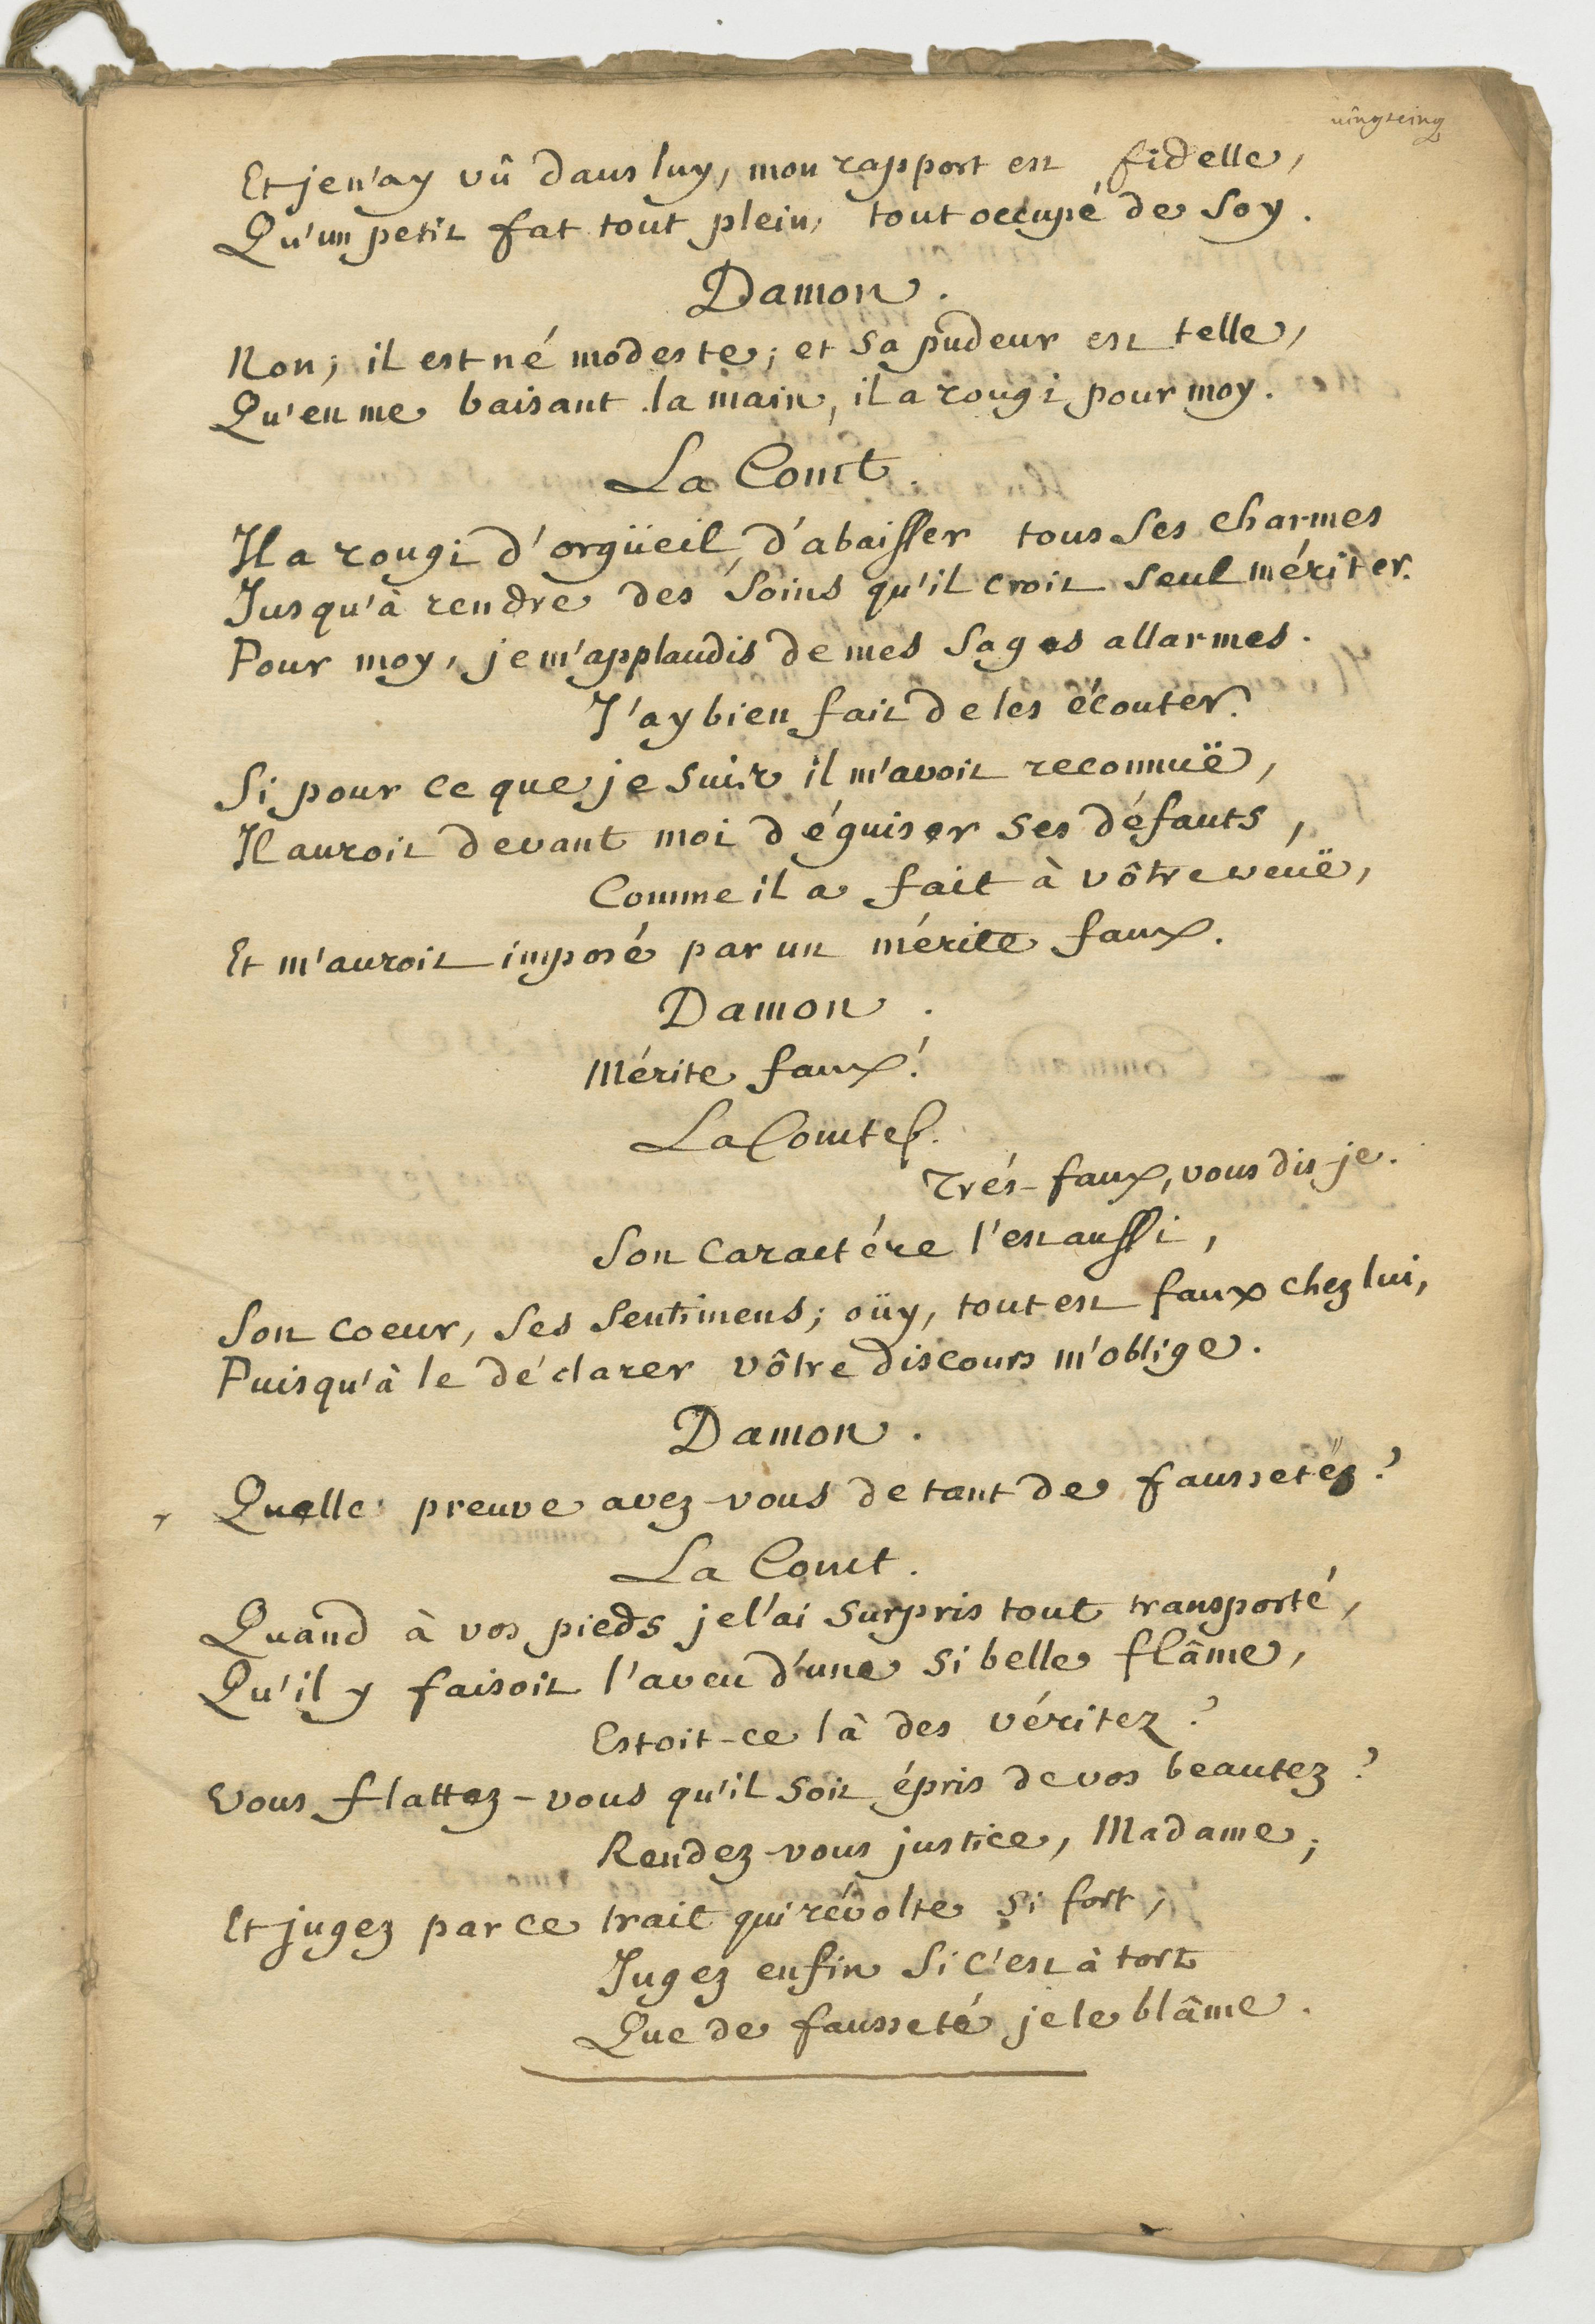 vingtcinq
Et je n'ay vû dans luy, mon rapport est fidelle,
Qu'un petit fat tout plein, tout occupé de soy.
Damon.
Non; il est né modeste; et sa pudeur est telle,
Qu'en me baisant la main, il a rougi pour moy.
La Comt.
Il a rougi d'orgüeil, d'abaisser tous ses charmes
Jusqu'à rendre des soins qu'il croit seul mériter.
Pour moy, je m'applaudis de mes sages allarmes.
J'ay bien fait de les écouter.
Si pour ce que je suis il m'avoit reconnuë,
Il auroit devant moi déguiser ses défauts,
Comme il a fait à vôtre veuë,
Et m'auroit imposé par un mérite faux.
Damon.
Mérite faux!
La Comtess.
Trés-faux, vous dis-je.
Son caractére l'est aussi,
Son coeur, ses sentimens; oüy, tout est faux chez lui,
Puisqu'à le déclarer vôtre discours m'oblige.
Damon.
Quelle preuve avez-vous de tant de faussetéz?
La Comt.
Quand à vos pieds je l'ai surpris tout transporté,
Qu'il y faisoit l'aveu d'une si belle flâme,
Estoit-ce là des véritez?
Vous flattez-vous qu'il soit épris de vos beautez?
Rendez-vous justice, Madame;
Et jugez par ce trait qui révolte si fort,
Jugez enfin si c'est à tort
Que de fausseté je le blâme.